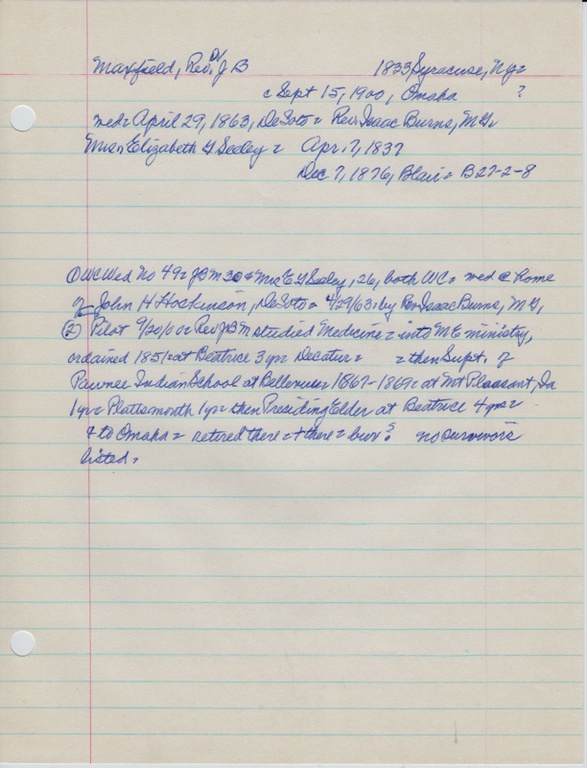 Maxfield, Rev. Dr J B 1833, Syracuse, N.Y.
c Sept 15, 1900, Omaha ?
wed April 29, 1863, DeSoto Rev. Isaac Burns, M.G.
Miss Elizabeth G Seeley Apr. 7, 1837
Dec 7, 1876, Blair B27-2-8
① WC Wed No 49 JBM 30 & Mrs E G Seeley, 26, both WC wed @ home
of John H Hockinson, DeSoto 4/29/63 by Rev Isaac Burns, M.G.
② Pilot 9/20/00 Rev JBM studied Medicine into ME ministry,
ordained 1851 at Beatrice 3 yr Decatur then Supt. of
Pawnee Indian School at Bellevue 1867-1869 at Mt Pleasant, Ia
1 yr Plattsmouth 1 yr then Presiding Elder at Beatrice 4 yrs
& to Omaha retired there & there bur ? no survivors
listed.